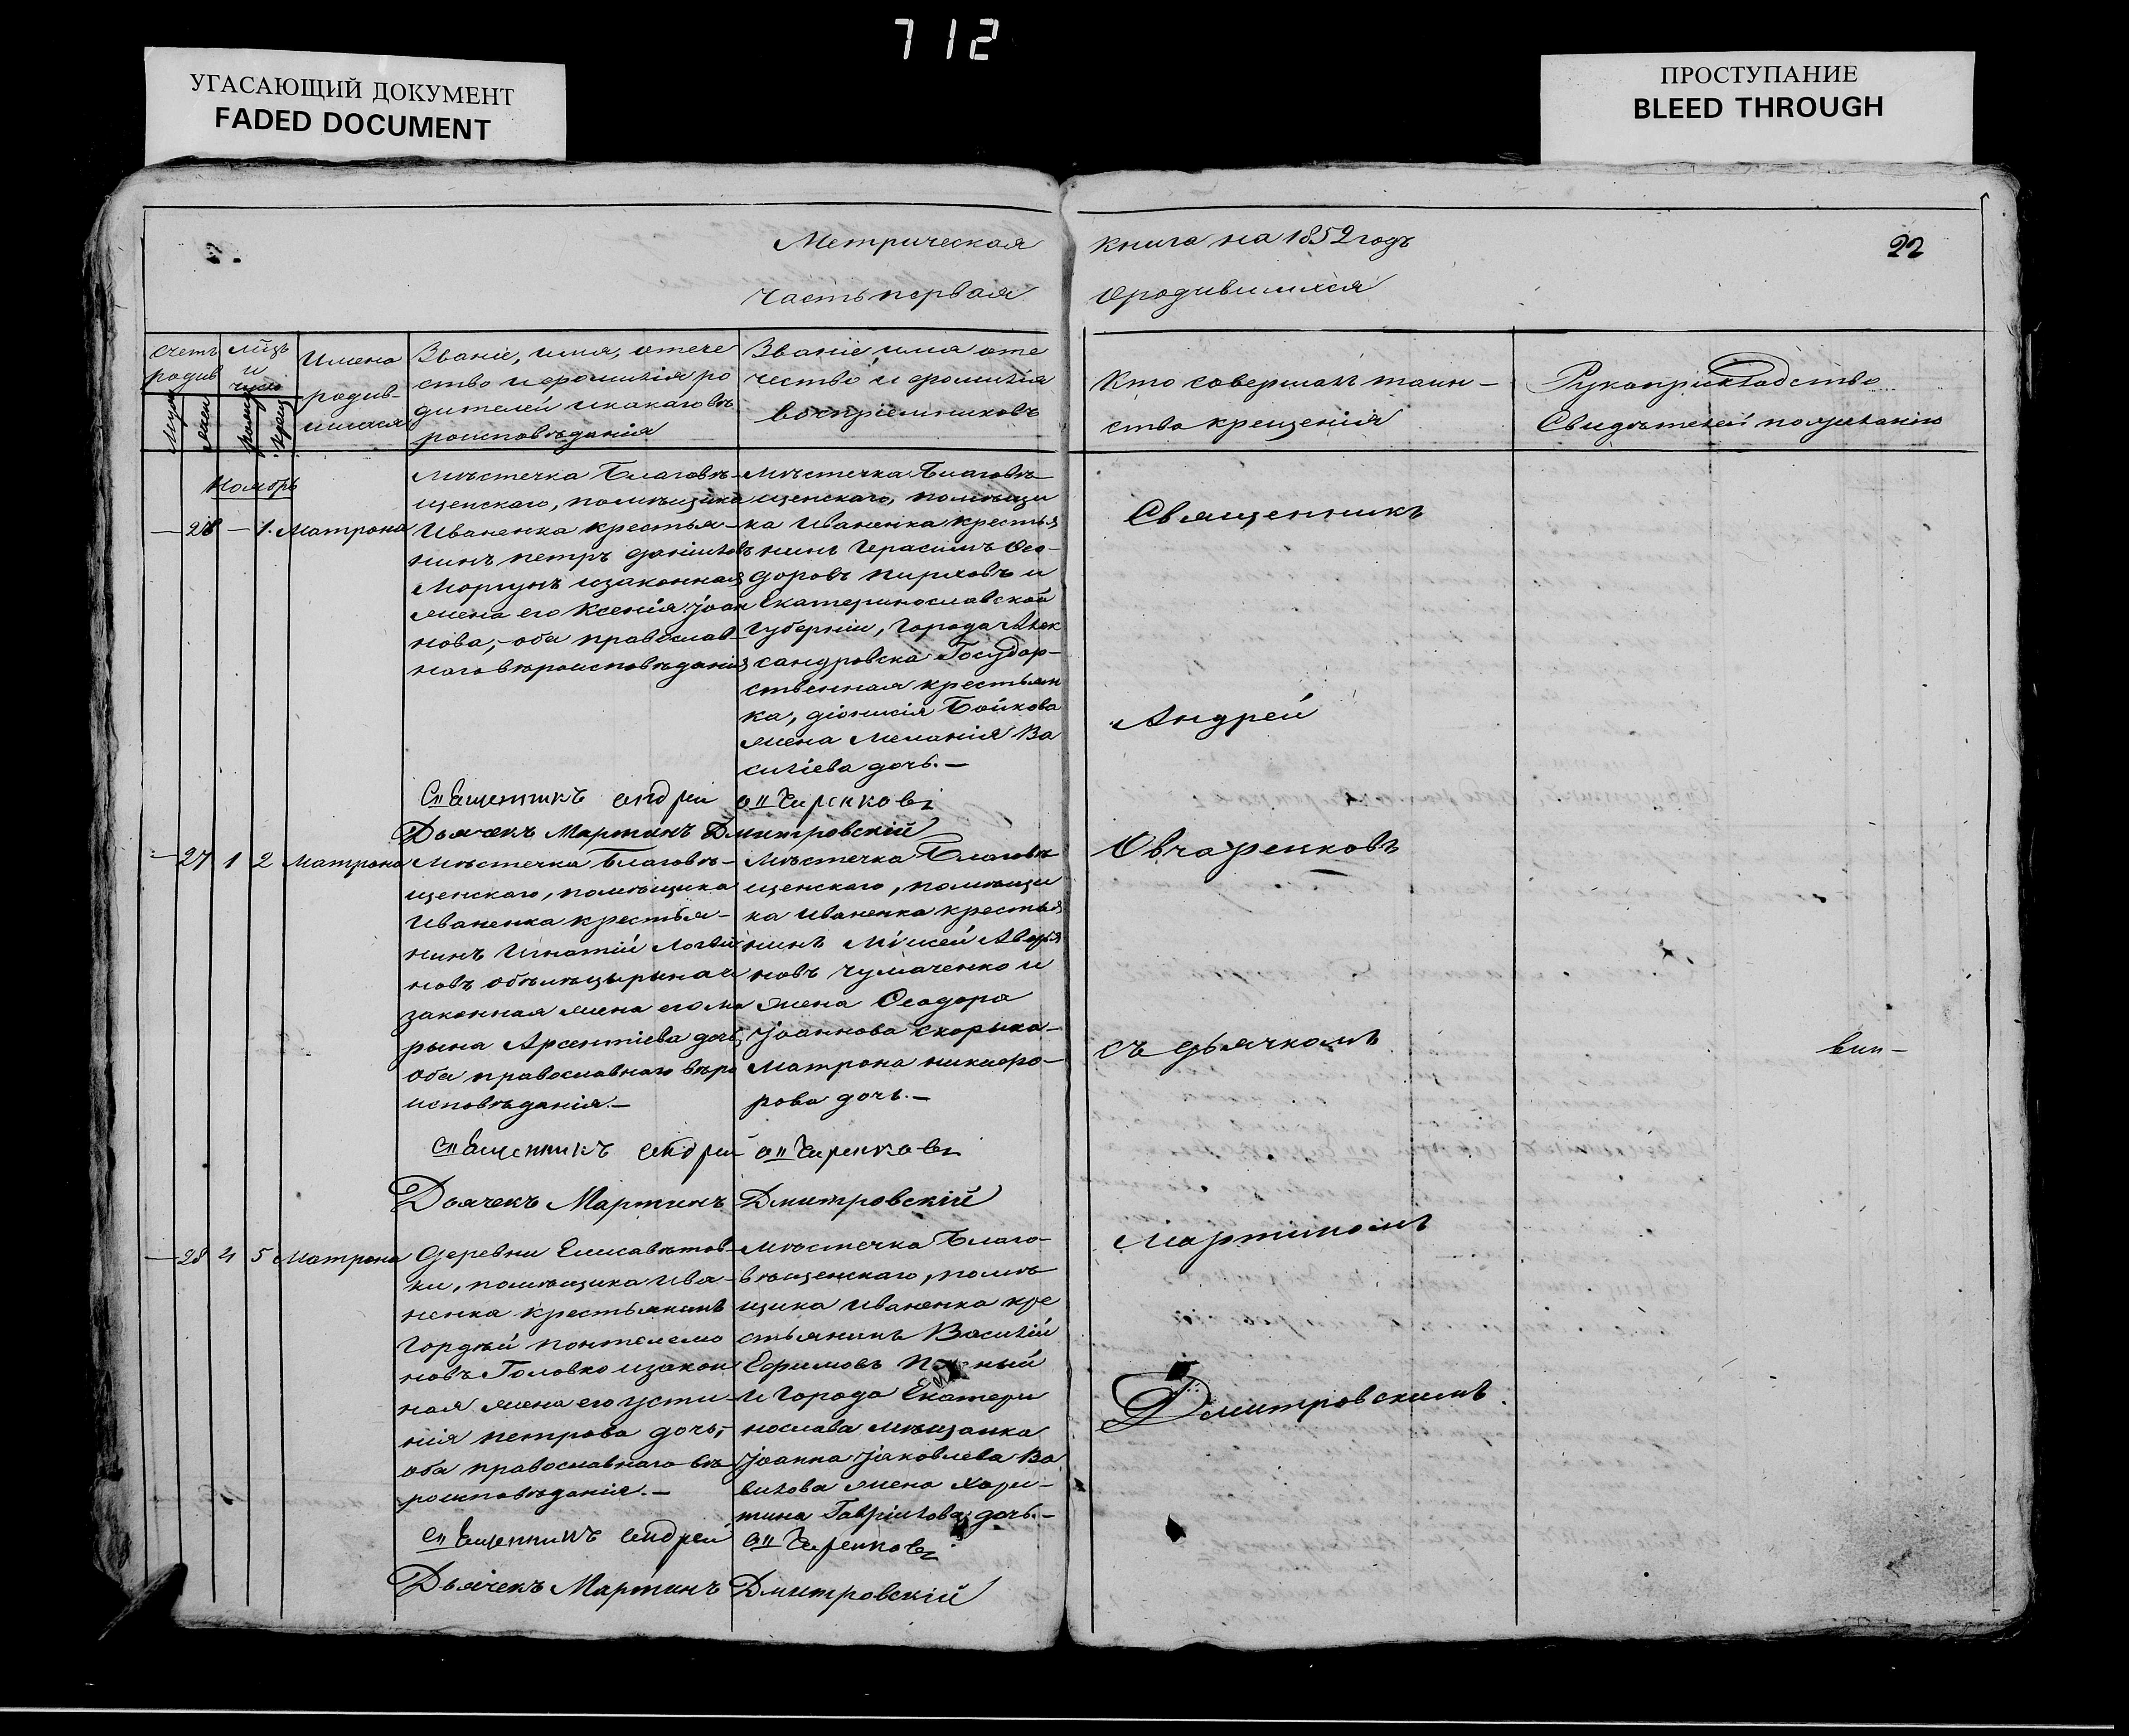 712
УГАСАЮЩИЙ ДОКУМЕНТ
FADED DOCUMENT
ПРОСТУПАНИЕ
BLEED THROUGH
Метрическая
часть первая
книга на 1852 годъ
22
Ородившихся
счетъ родив
муж
жен
м͠цъ и число
рожд
крещ
Имена
родив-
шихся
Званіе, имя, отече
ство и фомилія ро
дителей и какаго вѣ
роисповѣданія
Званіе имя оте
чество и фомилія
воспріемниковъ
Кто совершалъ таин-
ство крещенія
Рукоприкладство
Свидѣтелей по желанію
Ноябрь
— 26 — 1. Матрона
мѣстечка Благовѣ-
щенскаго, помѣщика
Иваненка крестья-
нинъ петръ даніиловъ
Моргунъ изаконная
жена его Ксенія іоан
нова, оба православ-
наго вѣроисповѣданія
мѣстечка Благовѣ-
щенскаго, помѣщи
ка Иваненка крестья
нинъ Герасимъ Ѳео-
доровъ и
Екатеринославской
Губерніи, города Алек
сандровска Государ-
ственная крестьян
ка, діонисія Бойкова
жена Меланія Ва
силіева дочь.—
Священникъ андрей овчаренковъ
Дьячекъ Мартинъ Дмитровскій
— 27 1 2 Матрона
Мѣстечка Благовѣ-
щенскаго, помѣщика
Иваненка крестья-
нинъ Игнатій
новъ
законная жена его ма
рына Арсентіева дочь,
оба православнаго вѣро
исповѣданія.—
Мѣстечка Благовѣ
щенскаго, помѣщи
ка Иваненка крестья
нинъ Аверья
новъ чумаченко и
жена Ѳеодора
іоаннова скорыка-
Матрона никифо-
рова дочь.—
Священникъ андрей овчаренковъ
Дьячекъ Мартинъ Дмитровскій
— 28 4 5 Матрона
Деревни Елисаветов-
ки, помѣщика Ива-
ненка крестьянинъ
гордѣй понтелемо
новъ Головко изакон
ная жена его усти-
нія петрова дочь,
оба православнаго вѣ
роисповѣданія.—
мѣстечка Благо-
вѣщенскаго, помѣ
щика Иваненка кре
стьянинъ Василій
Ефимовъ
и города Екатери
нослава мѣщанка
іоанна іаковлева Ва
вилова жена Хари-
тина Гавріилова дочь.—
Священникъ андрей овчаренковъ
Дьячекъ Мартинъ Дмитровскій
Священникъ
Андрей
Овчаренковъ
съ дьячкомъ
Мартиномъ
Дмитровскимъ.